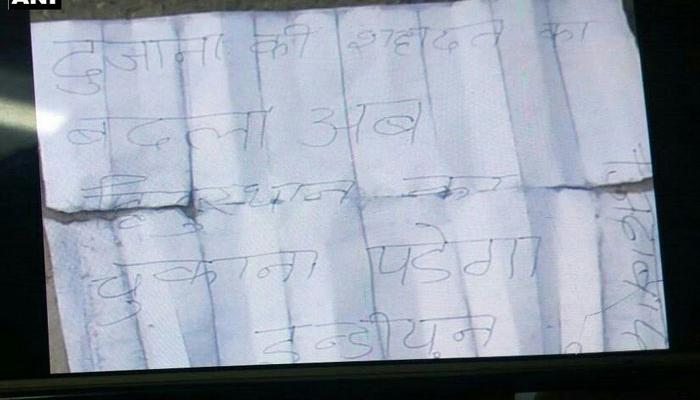 ANI
दुजाना की शहादत का
बदला अब
हिन्दुस्थान को
चुकाना पडेगा
इन्डीयन